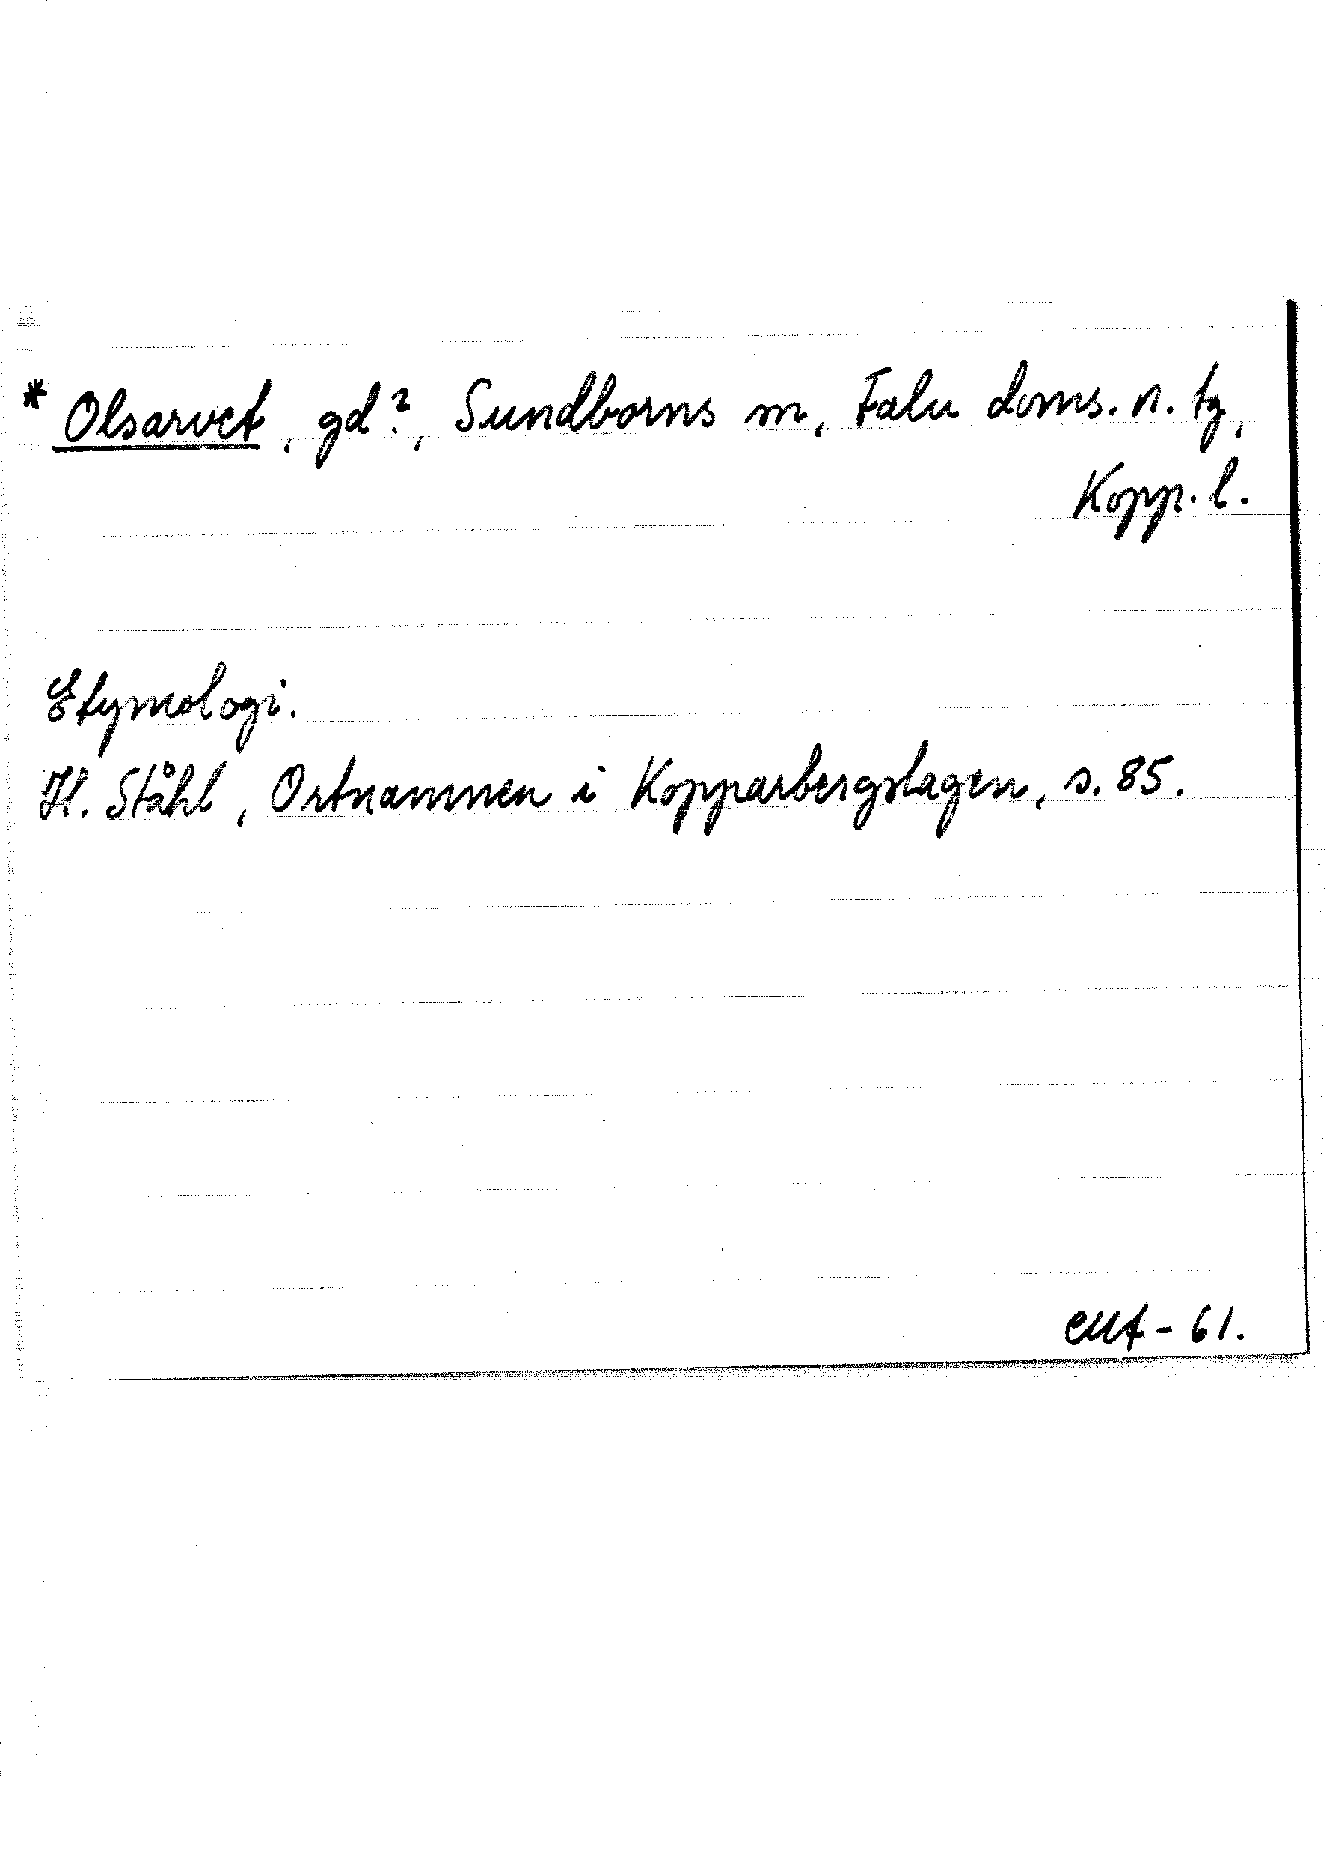 * Olsarvet, gd?, Sundborns sn, Falu doms. n. tg,
Kopp. l.
Etymologi.
H. Ståhl, Ortnamnen i Kopparbergslagen, s. 85.
- 61.